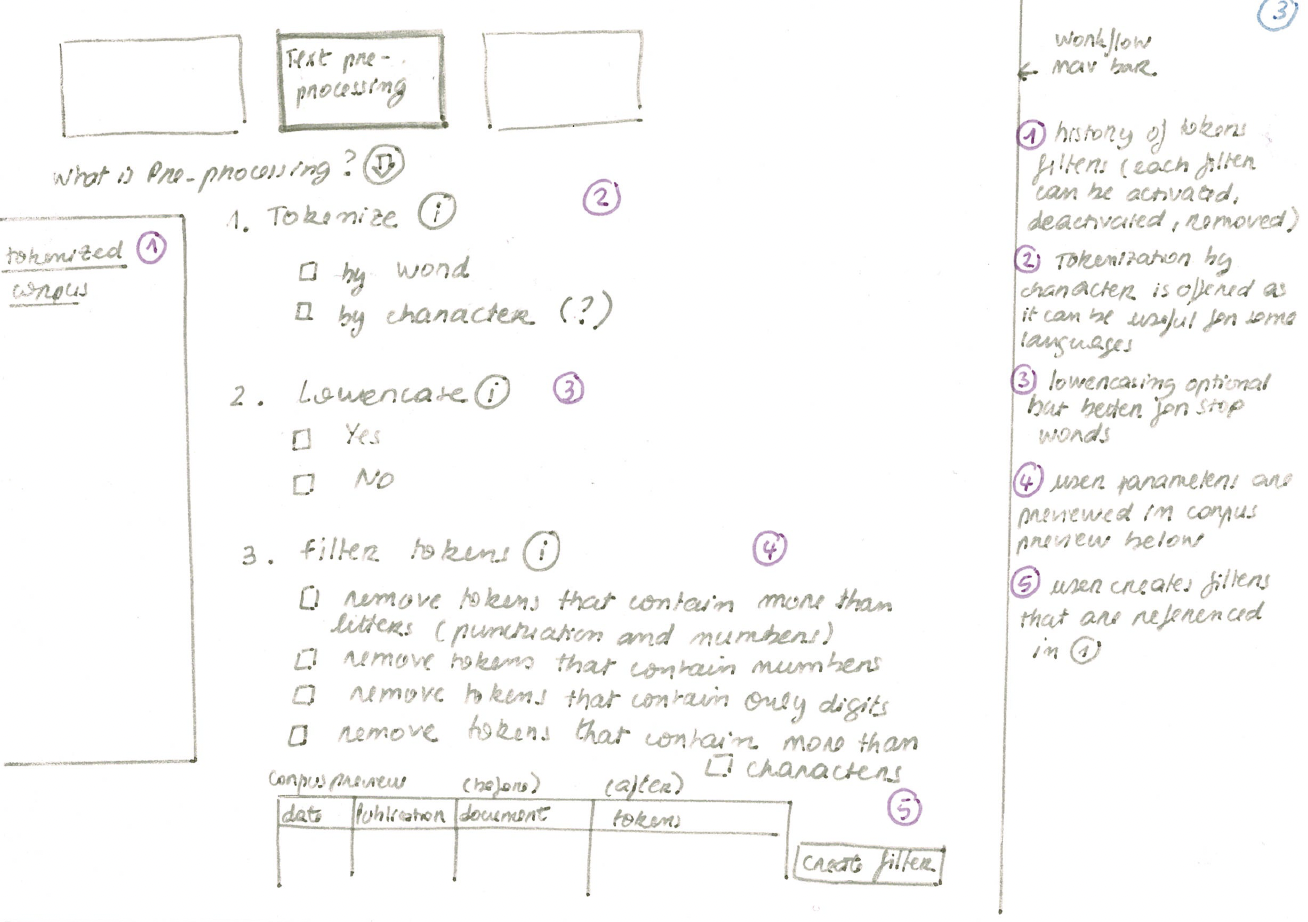 3
Text pre-
processing
workflow
← nav bar
What is Pre-processing?
1. Tokenize i
2
by word
by character (?)
tokenized 1
corpus
2. Lowercase i
3
Yes
No
3. filter tokens i
4
remove tokens that contain more than
letters (punctuation and numbers)
remove tokens that contain numbers
remove tokens that contain only digits
remove tokens that contain more than
characters
corpus preview (before) (after)
date Publication document tokens
5
create filter
1 history of tokens
filters (each filter
can be activated,
deactivated, removed)
2 Tokenization by
character is offered as
it can be useful for some
languages
3 lowercasing optional
but better for stop
words
4 user parameters are
previewed in corpus
preview below
5 user creates filters
that are referenced
in 1